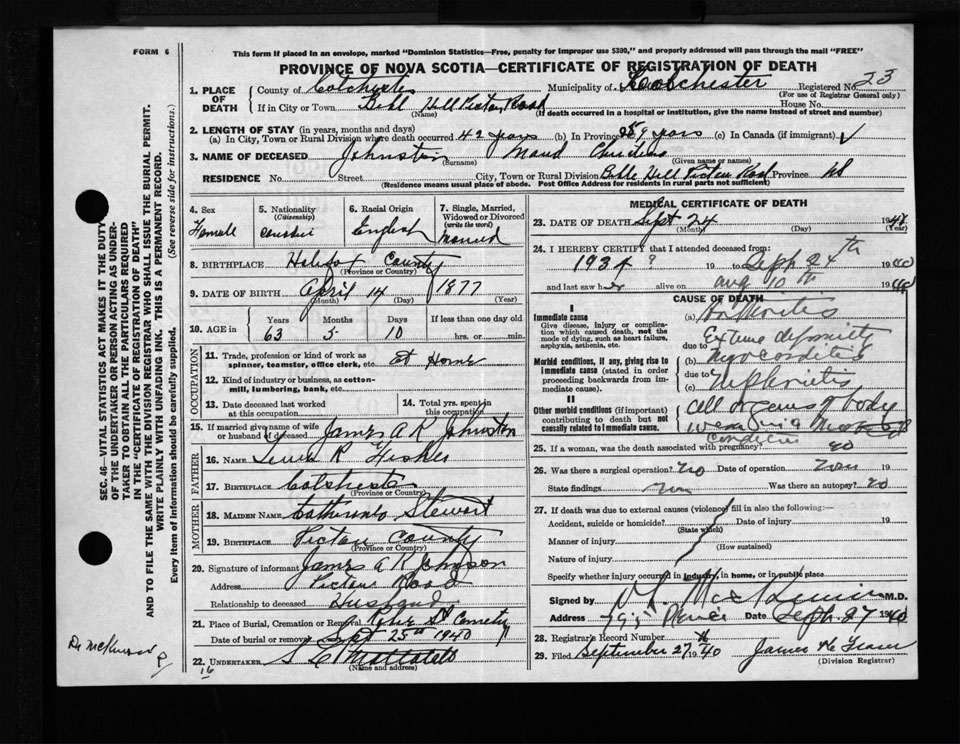 FORM 6
This form if placed in an envelope, marked "Dominion Statistics—Free, penalty for improper use $300," and properly addressed will pass through the mail "FREE"
PROVINCE OF NOVA SCOTIA—CERTIFICATE OF REGISTRATION OF DEATH
1. PLACE OF DEATH
County of Colchester Municipality of Colchester Registered No. 23
(For use of Registrar General only)
If in City or Town Hill Pictou Road House No.
(Name) (If death occurred in a hospital or institution, give the name instead of street and number)
2. LENGTH OF STAY (in years, months and days)
(a) In City, Town or Rural Division where death occurred 42 years (b) In Province 59 years (c) In Canada (if immigrant) ✓
3. NAME OF DECEASED Johnston Maud
(Surname) (Given name or names)
RESIDENCE No. Street City, Town or Rural Division Bible Hill Pictou Road Province NS
(Residence means usual place of abode. Post Office Address for residents in rural parts not sufficient)
4. Sex
Female
5. Nationality
(Citizenship)
6. Racial Origin
English
7. Single, Married, Widowed or Divorced
(write the word)
Married
8. BIRTHPLACE Halifax County
(Province or Country)
9. DATE OF BIRTH April 14 1877
(Month) (Day) (Year)
10. AGE in
Years Months Days If less than one day old
63 5 10 hrs. or min.
OCCUPATION
11. Trade, profession or kind of work as spinner, teamster, office clerk, etc. At Home
12. Kind of industry or business, as cotton-mill, lumbering, bank, etc.
13. Date deceased last worked at this occupation
14. Total yrs. spent in this occupation
15. If married give name of wife or husband of deceased James A R Johnston
FATHER
16. NAME R
17. BIRTHPLACE Colchester
(Province or Country)
MOTHER
18. MAIDEN NAME Stewart
19. BIRTHPLACE Pictou County
(Province or Country)
20. Signature of informant James A R Johnson
Address Pictou Road
Relationship to deceased Husband
21. Place of Burial, Cremation or Removal St Cemetery
Date of burial or removal Sept 25th 1940
22. UNDERTAKER
(Name and address)
MEDICAL CERTIFICATE OF DEATH
23. DATE OF DEATH Sept 24 1940
(Month) (Day) (Year)
24. I HEREBY CERTIFY that I attended deceased from:
1934 ? 19 to Sept 24th 1940
and last saw her alive on Aug 10th 1940
CAUSE OF DEATH
I
Immediate cause
Give disease, injury or complication which caused death, not the mode of dying, such as heart failure, asphyxia, asthenia, etc.
(a) Arthritis
Extreme deformity
due to
Morbid conditions, if any, giving rise to immediate cause (stated in order proceeding backwards from immediate cause).
(b) Myocarditis
due to
(c) Nephritis
II
Other morbid conditions (if important) contributing to death but not causally related to immediate cause.
all organs of body
25. If a woman, was the death associated with pregnancy? no
26. Was there a surgical operation? no Date of operation 19
State findings Was there an autopsy? no
27. If death was due to external causes (violence) fill in also the following:—
Accident, suicide or homicide? Date of injury 19
(State which)
Manner of injury
(How sustained)
Nature of injury
Specify whether injury occurred in industry, in home, or in public place
Signed by M.D.
Address Date Sept. 27 1940
28. Registrar's Record Number
29. Filed September 27th 1940 James
(Division Registrar)
SEC. 46—VITAL STATISTICS ACT MAKES IT THE DUTY
OF THE UNDERTAKER OR PERSON ACTING AS UNDER-
TAKER TO OBTAIN ALL THE PARTICULARS REQUIRED
IN THE "CERTIFICATE OF REGISTRATION OF DEATH"
AND TO FILE THE SAME WITH THE DIVISION REGISTRAR WHO SHALL ISSUE THE BURIAL PERMIT.
WRITE PLAINLY WITH UNFADING INK. THIS IS A PERMANENT RECORD.
Every item of information should be carefully supplied. (See reverse side for instructions.)
16